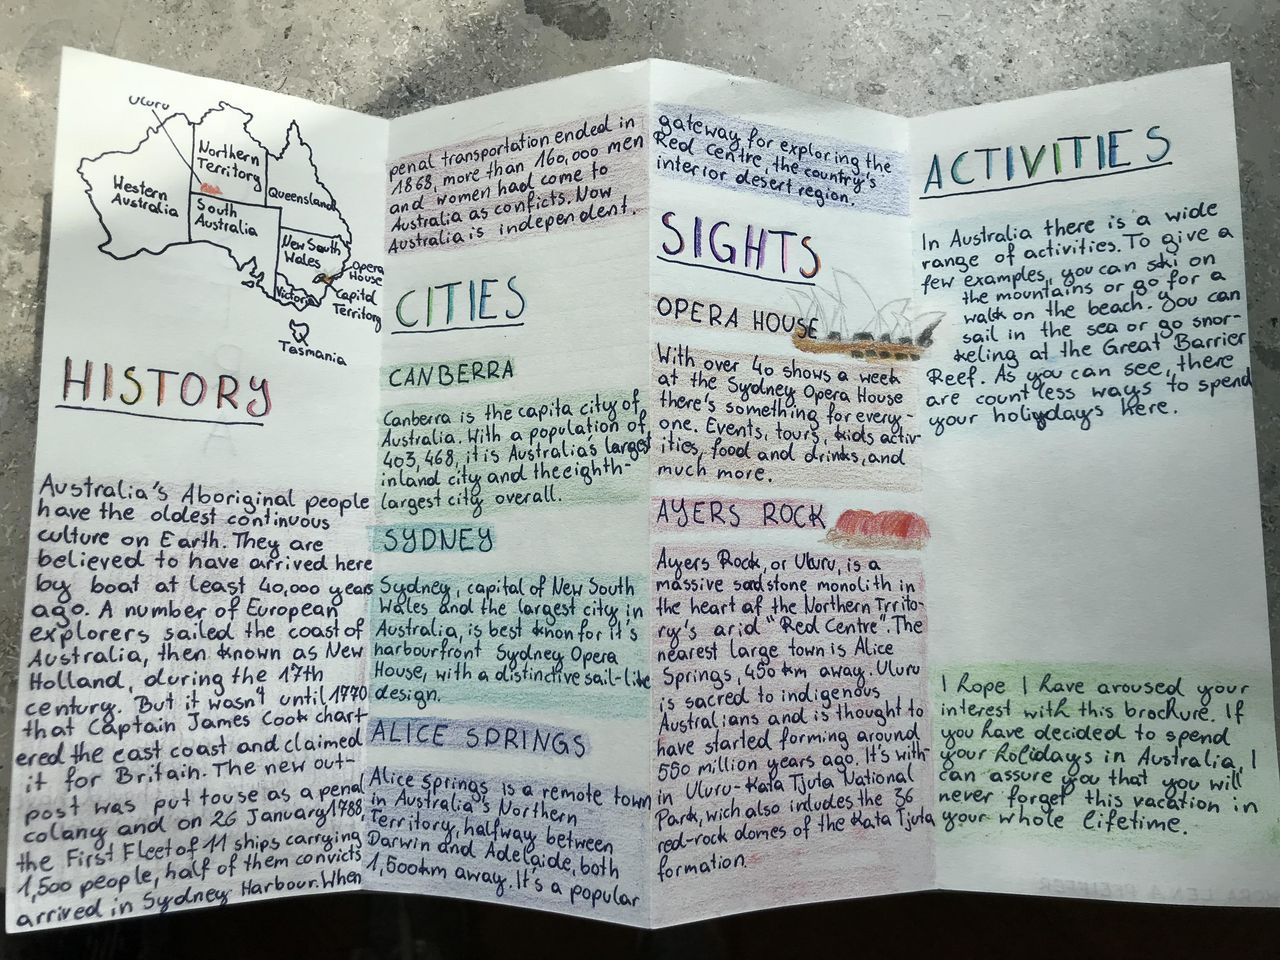 Uluru
Northern
Territory
Western
Australia
Queensland
South
Australia
New South
Wales
Opera
House
Capital
Territory
Victoria
Tasmania
HISTORY
Australia's Aboriginal people
have the oldest continuous
culture on Earth. They are
believed to have arrived here
by boat at least 40,000 years
ago. A number of European
explorers sailed the coast of
Australia, then known as New
Holland, during the 17th
century. But it wasn't until 1770
that Captain James Cook chart
ered the east coast and claimed
it for Britain. The new out-
post was put to use as a penal
colany and on 26 January 1788,
the First Fleet of 11 ships carrying
1,500 people, half of them convicts
arrived in Sydney Harbour. When
penal transportation ended in
1868, more than 160,000 men
and women had come to
Australia as conficts. Now
Australia is independent.
CITIES
CANBERRA
Canberra is the capita city of
Australia. With a population of
403,468, it is Australia's largest
inland city and the eighth-
largest city overall.
SYDNEY
Sydney, capital of New South
Wales and the largest city in
Australia, is best knon for it's
harbourfront Sydney Opera
House, with a distinctive sail-like
design.
ALICE SPRINGS
Alice Springs is a remote town
in Australia's Northern
Territory, halfway between
Darwin and Adelaide, both
1,500km away. It's a popular
gateway for exploring the
Red centre, the country's
interior desert region.
SIGHTS
OPERA HOUSE
With over 40 shows a week
at the Sydney Opera House
there's something for every-
one. Events, tours, kids activ-
ities, food and drinks, and
much more.
AYERS ROCK
Ayers Rock, or Uluru, is a
massive sandstone monolith in
the heart of the Northern Trrito-
ry's arid "Red Centre". The
nearest large town is Alice
Springs, 450 km away. Uluru
is sacred to indigenous
Australians and is thought to
have started forming around
550 million years ago. It's with-
in Uluru-Kata Tjuta National
Park, wich also includes the 36
red-rock domes of the Kata Tjuta
formation.
ACTIVITIES
In Australia there is a wide
range of activities. To give a
few examples, you can ski on
the mountains or go for a
walk on the beach. You can
sail in the sea or go snor-
keling at the Great Barrier
Reef. As you can see, there
are countless ways to spend
your holidays here.
I hope I have aroused your
interest with this brochure. If
you have decided to spend
your holidays in Australia, I
can assure you that you will
never forget this vacation in
your whole lifetime.